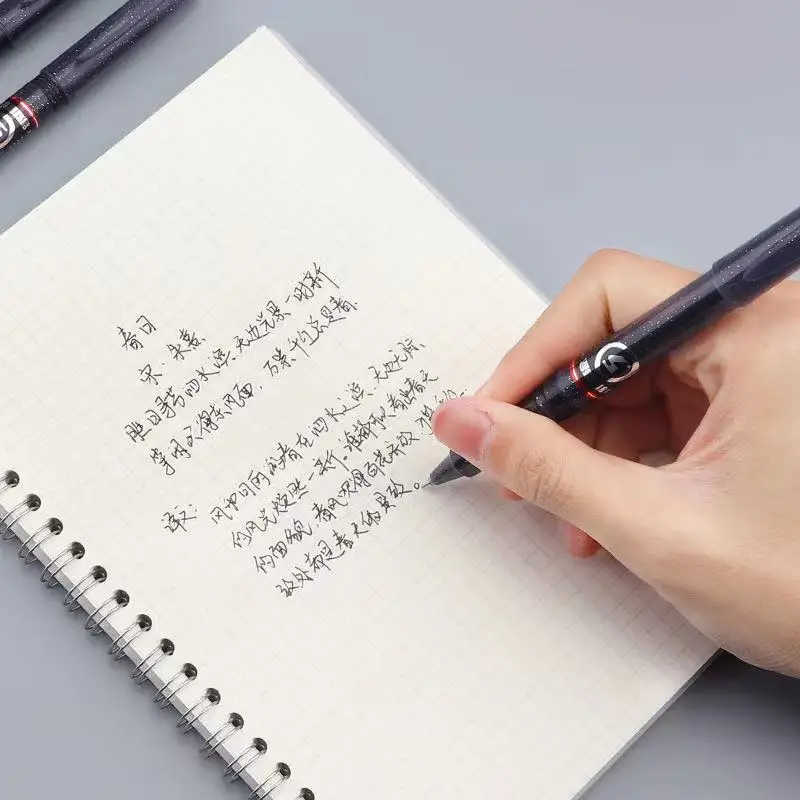 春日
宋·朱熹
胜日寻芳泗水滨,无边光景一时新
等闲识得东风面,万紫千红总是春.
译:风和日丽游春在泗水之滨,无边无际
的风光焕然一新。谁都可以看出春天
的面貌,春风吹得百花开放
到处都是春天的景致。